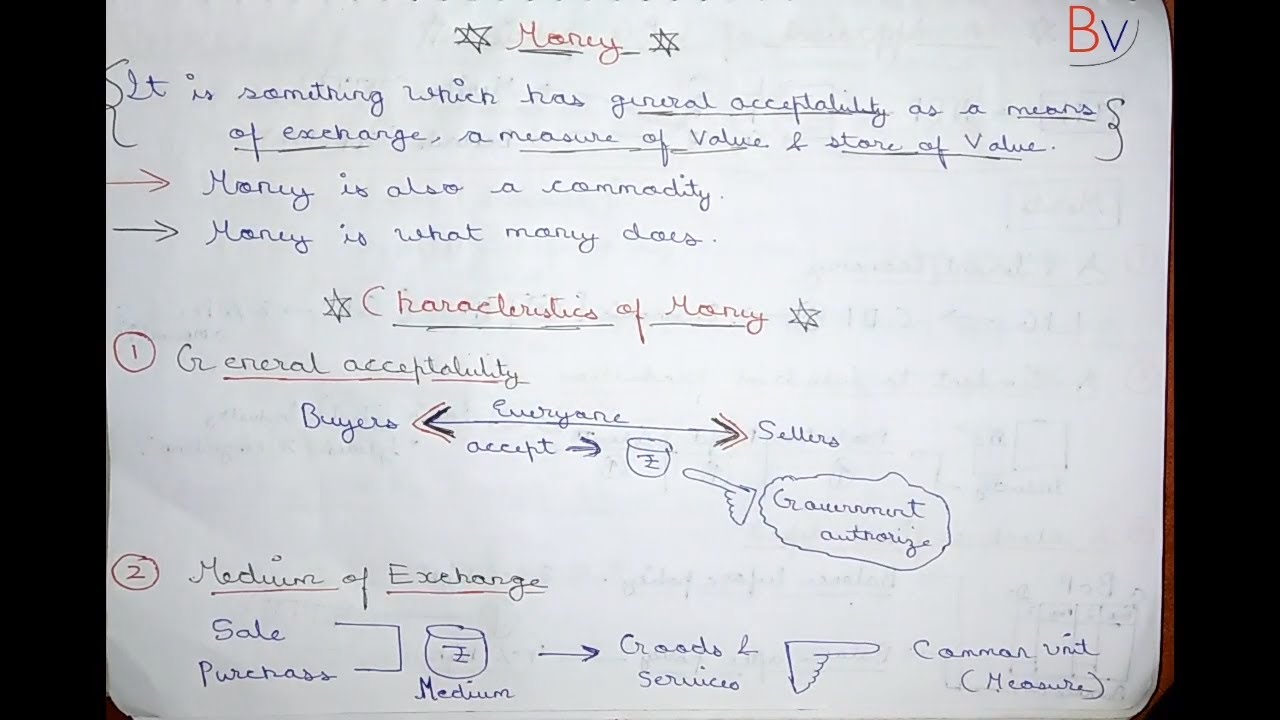 BV
Money
It is something which has general acceptability as a means
of exchange, a measure of Value & store of Value.
Money is also a commodity.
Money is what money does.
Characteristics of Money
1 General acceptability
Buyers Everyone Sellers
accept
Government
authorize
2 Medium of Exchange
Sale
Purchass
Medium
Goods &
Services
Common unit
(Measure)